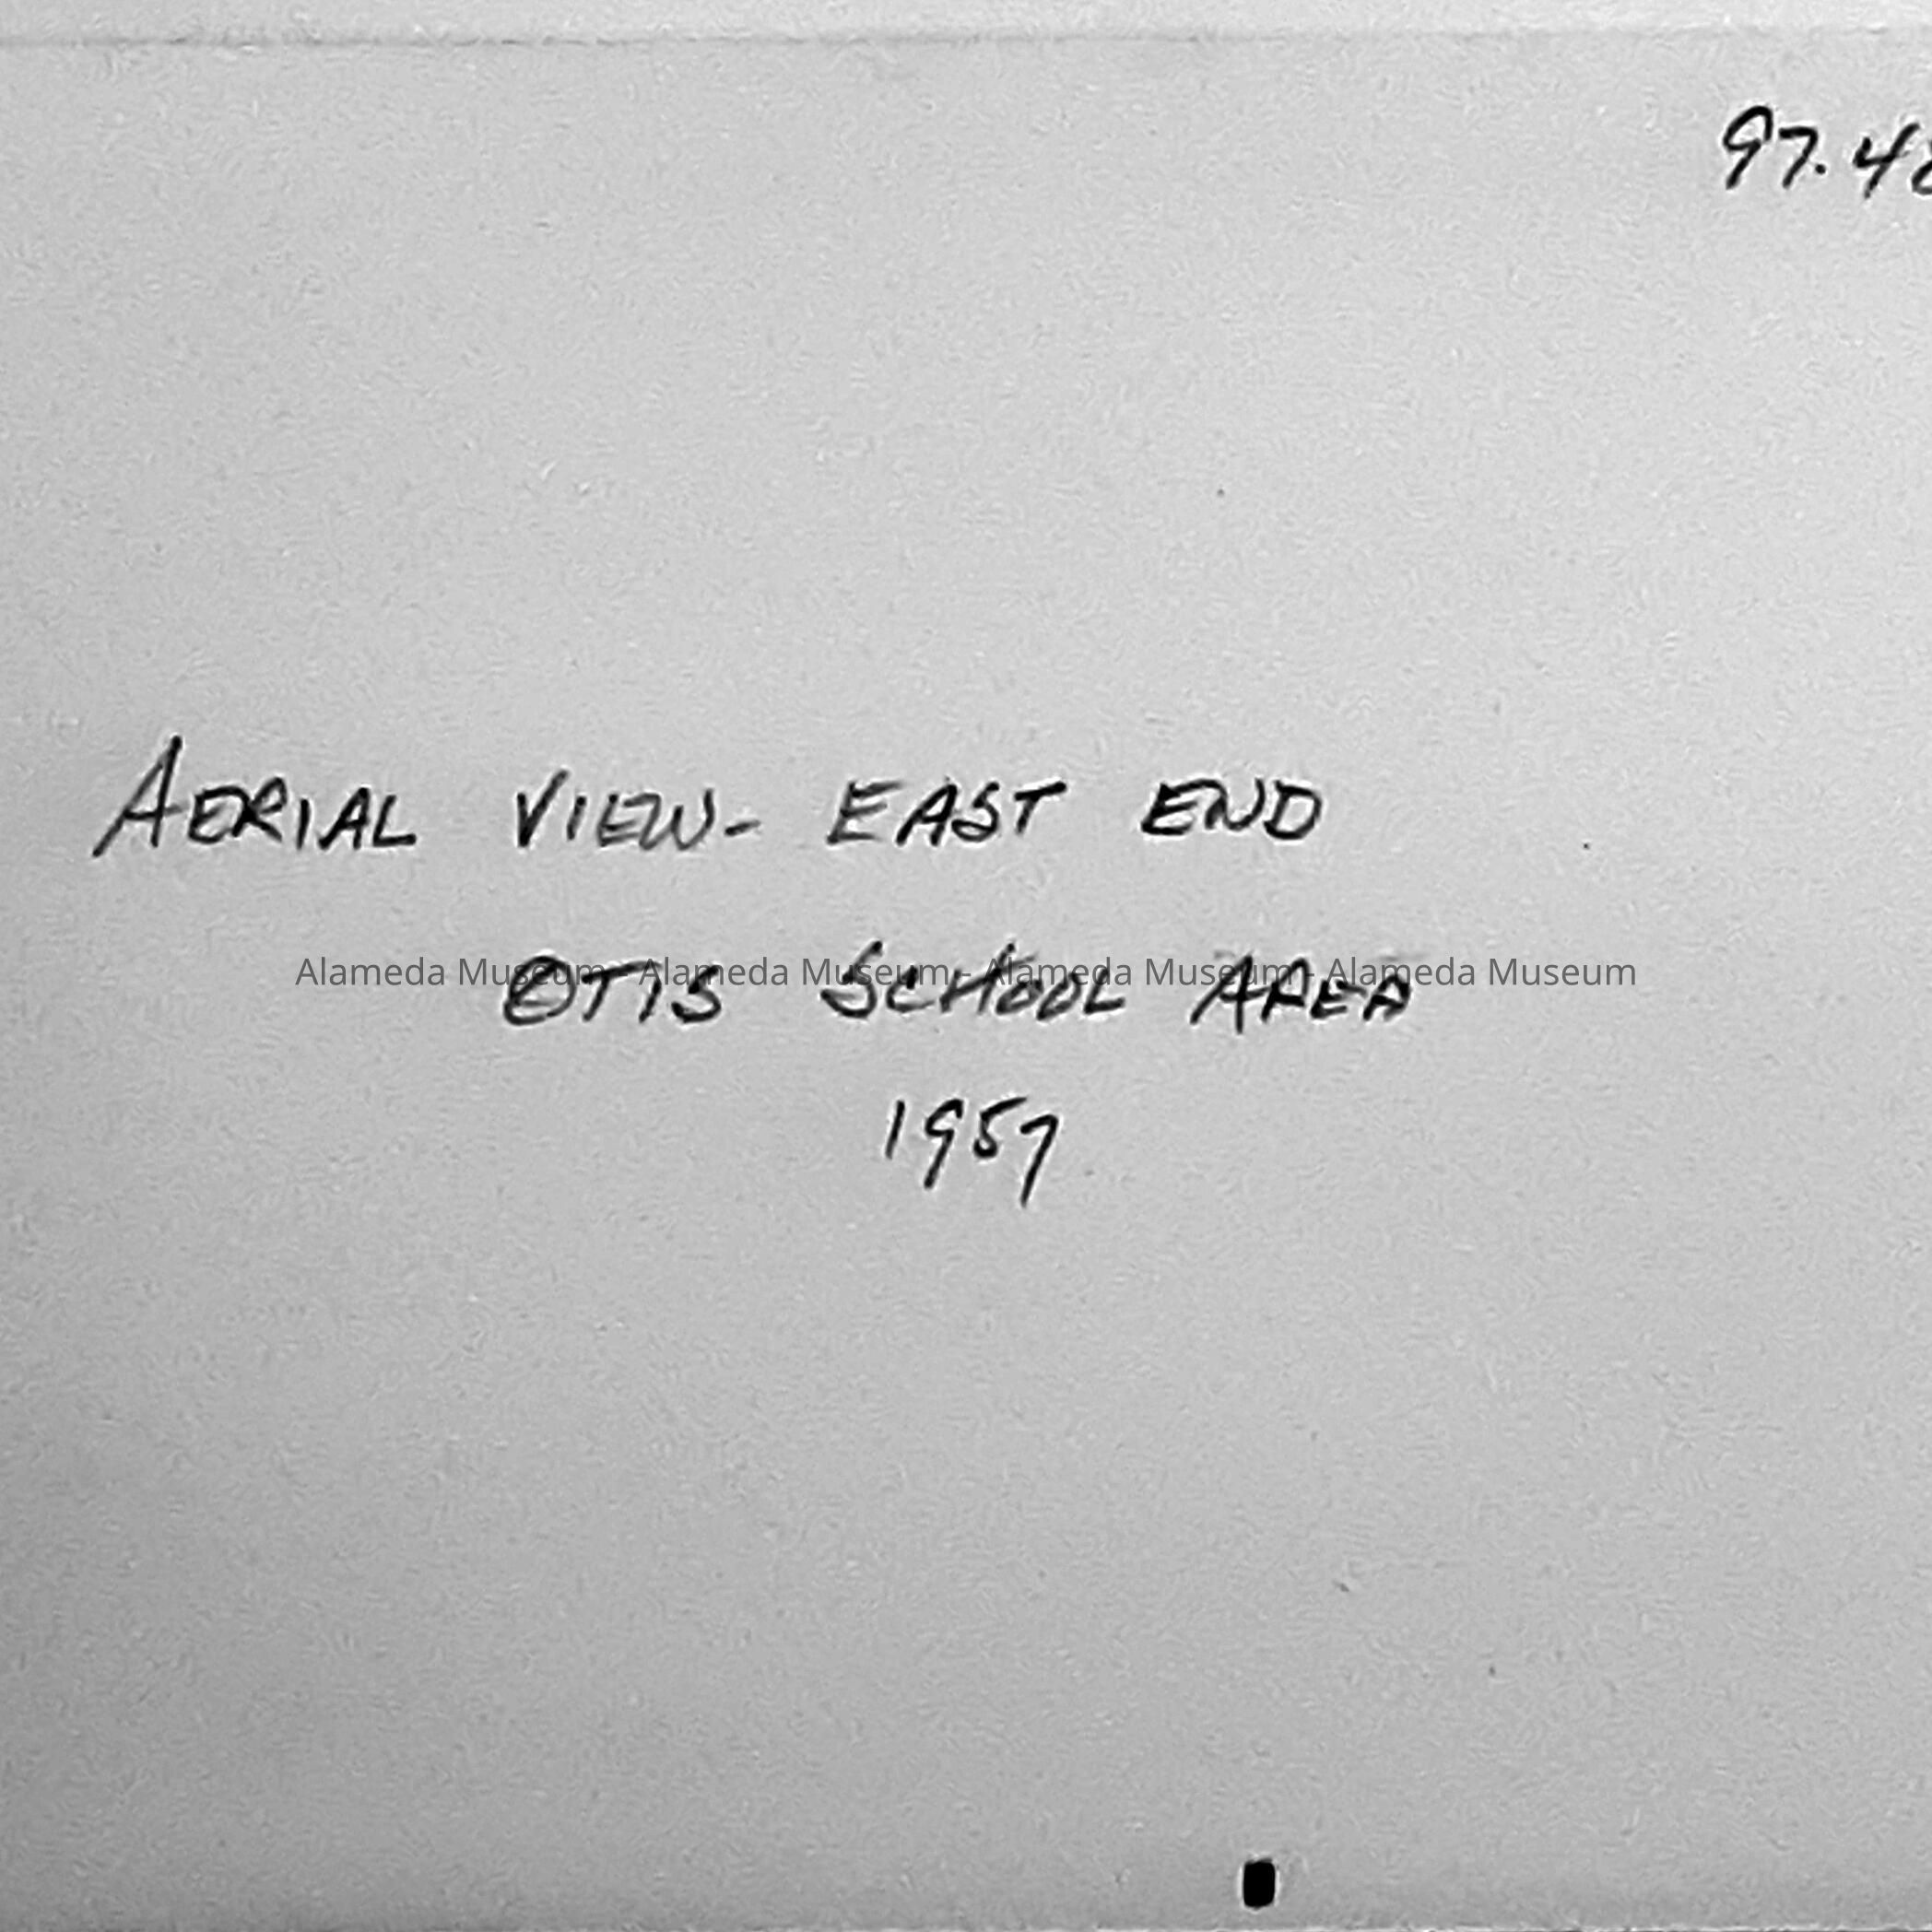 97.4
AERIAL VIEW- EAST END
Alameda Museum - Alameda Museum - Alameda Museum - Alameda Museum
OTIS SCHOOL AREA
1957